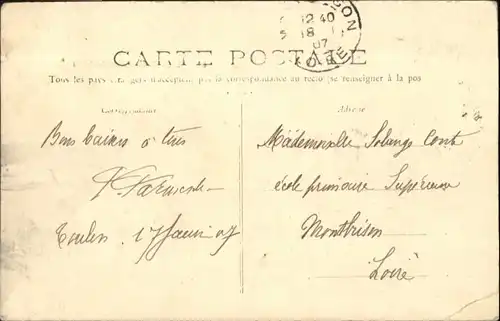 12 40
18 1
07
LOIRE
CARTE POSTALE
Tous les pays étrangers n'acceptent pas la correspondance au recto (se renseigner à la pos
Correspondance
Adresse
Bons baisers à tous
Toulon 17 Janv 07
Mademoiselle Solange Cont
école primaire Supérieure
Montbrison
Loire